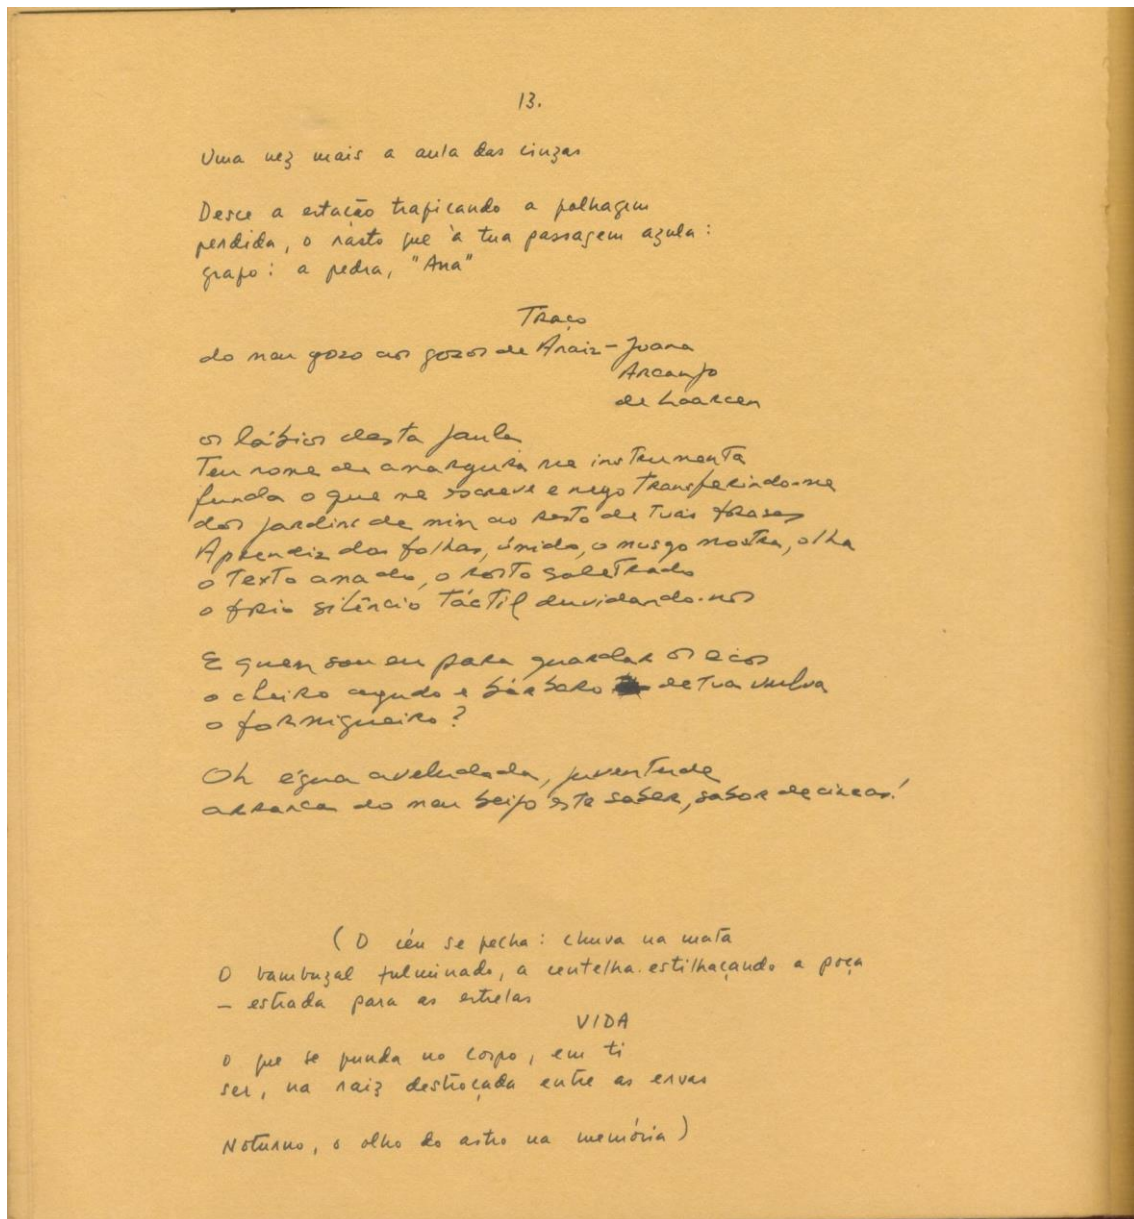 13.
Uma vez mais a aula das cinzas
Desce a estação traficando a folhagem
perdida, o rasto que à tua passagem azula:
grafo: a pedra, "Ana"
Traço
do meu gozo aos gozos de Anaiz - Joana
Arcanjo
de
os lábios desta jaula
Teu nome de amargura me instrumenta
funda o que me escreve e nego transferindo-me
dos jardins de mim ao resto de tuas frases
Aprendiz das folhas, úmido, o musgo mostra, olha
o texto amado, o rosto soletrado
o frio silêncio táctil duvidando-nos
E quem sou eu para guardar os ecos
o cheiro agudo e bárbaro de tua vulva
o formigueiro?
Oh égua aveludada, juventude
arranca do meu beijo este saber, sabor de cinzas!
(O céu se fecha: chuva na mata
O bambuzal fulminado, a centelha estilhaçando a poça
– estrada para as estrelas
VIDA
o que se funda no corpo, em ti
ser, na raiz destroçada entre as ervas
Noturno, o olho do astro na memória)